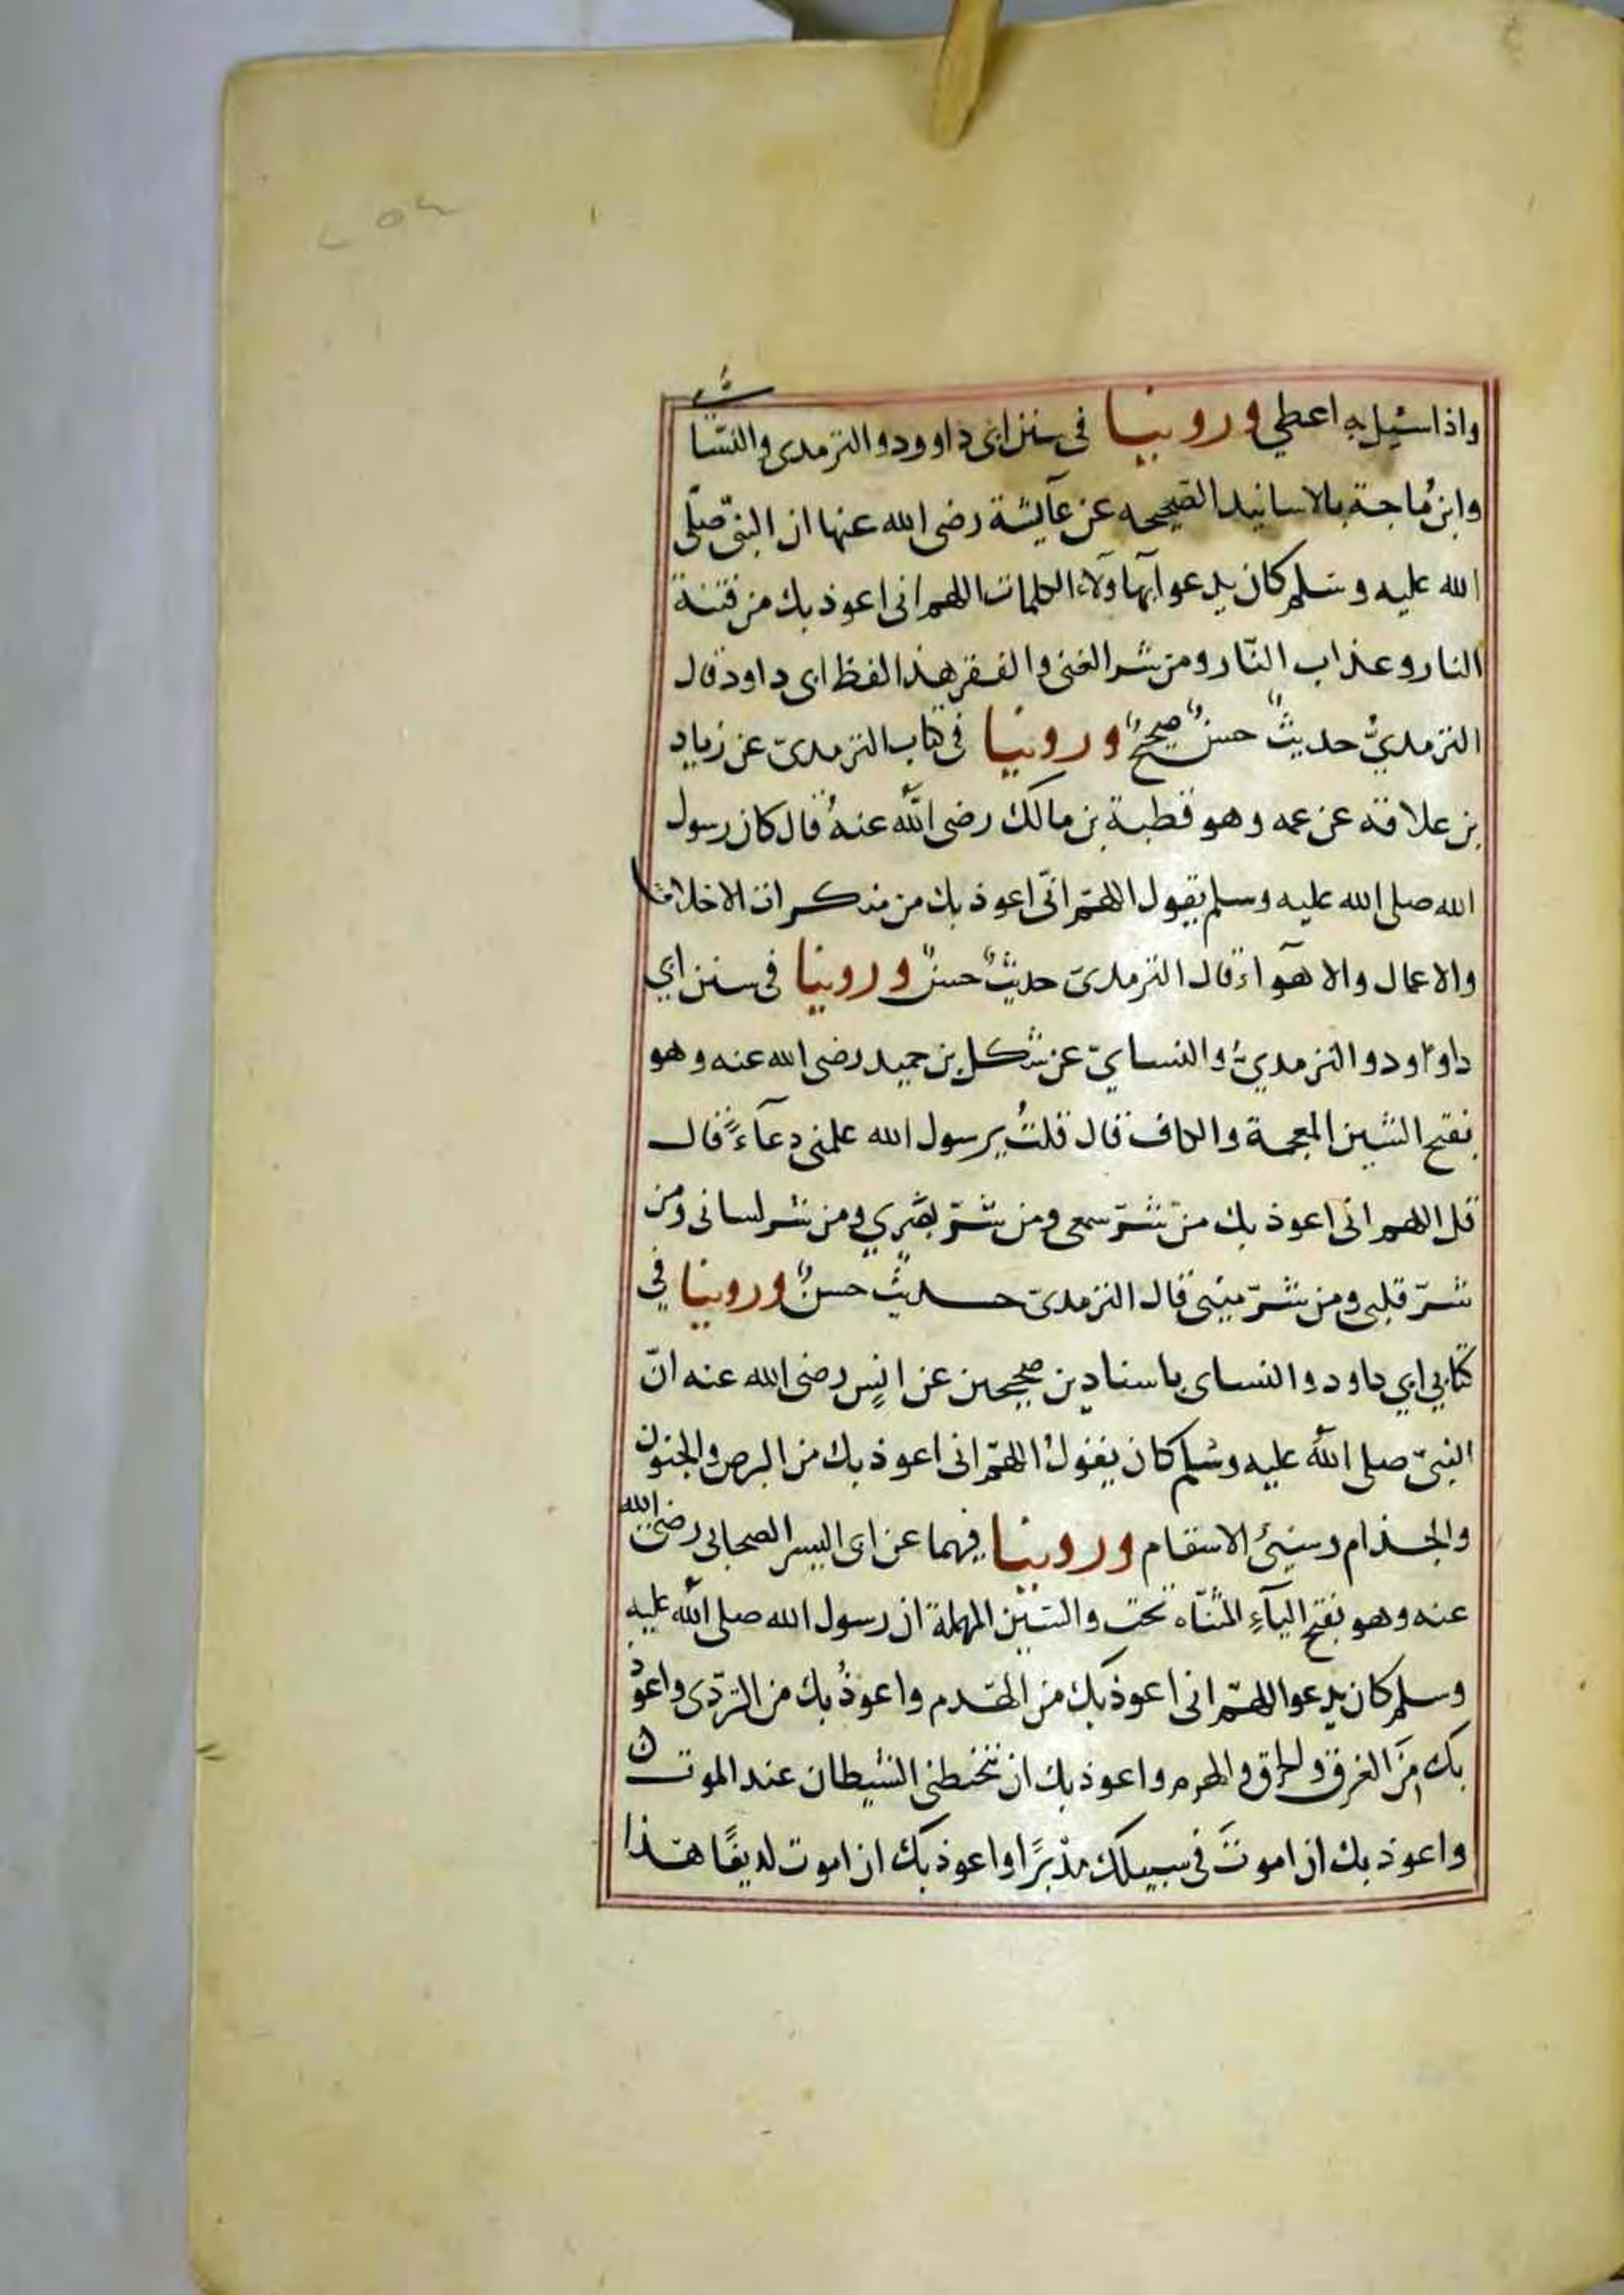 واذا سئيل به اعطي وروينا في سنن ابى داوود والترمدى والنسّا
وابن ماجة بالاسانيد الصحيحه عن عآيشة رضى الله عنها ان النبىّ صلّى
الله عليه وسلم كان يدعوا بهاولآء الكلمات اللهم انى اعوذ بك من فتنة
النار وعذاب النّار ومن شر الغنى والفقر هذا لفظ ابى داود قال
الترمديُّ حديثٌ حسنٌ صحيحٌ وروينا فى كتاب الترمدىّ عن زياد
بن علاقة عن عمه وهو قطبة بن مالك رضى الله عنهُ قال كان رسول
الله صلى الله عليه وسلم يقول اللهمّ انّى اعوذ بك من منكرات الاخلاق
والاعمال والاهوآء قال الترمدىّ حديثٌ حسنٌ وروينا فى سنن ابي
داوود والترمديّ والنسايّ عن شكل بن حميد رضى الله عنه وهو
بفتح الشين المعجمة والكاف قال قلتُ يرسول الله علمنى دعآءً قال
قل اللهم انى اعوذ بك منّ شرّ سمعى ومن شرّ بصَري ومن شر لسانى ومن
شرّ قلبى ومن شرّ مينى قال الترمدىّ حديثٌ حسنٌ وروينا في
كتابي ابي داود والنساى باسنادين صحيحين عن انسٍ رضى الله عنه انّ
النبىّ صلى الله عليه وسلم كان يقولُ اللهمّ انى اعوذ بك من البرص والجنون
والجذام وسيئ الاسقام وروينا فيهما عن ابى اليسر الصحابى رضى الله
عنه وهو بفتح اليآءِ المثنّاه تحت والسّين المهملة ان رسول الله صلى الله عليه
وسلم كان يدعوا اللهمّ انى اعوذ بك من الهدم واعوذُ بك من التردّى واعوذ
بك منَ الغرق والحراق والهرم واعوذ بك ان تتخبطنى الشيطان عند الموت
واعوذ بك ان اموتَ فى سبيلك مدْبرًا واعوذ بك ان اموت لديغًا هذا